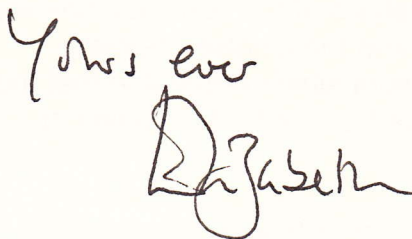 Yours ever
Elizabeth